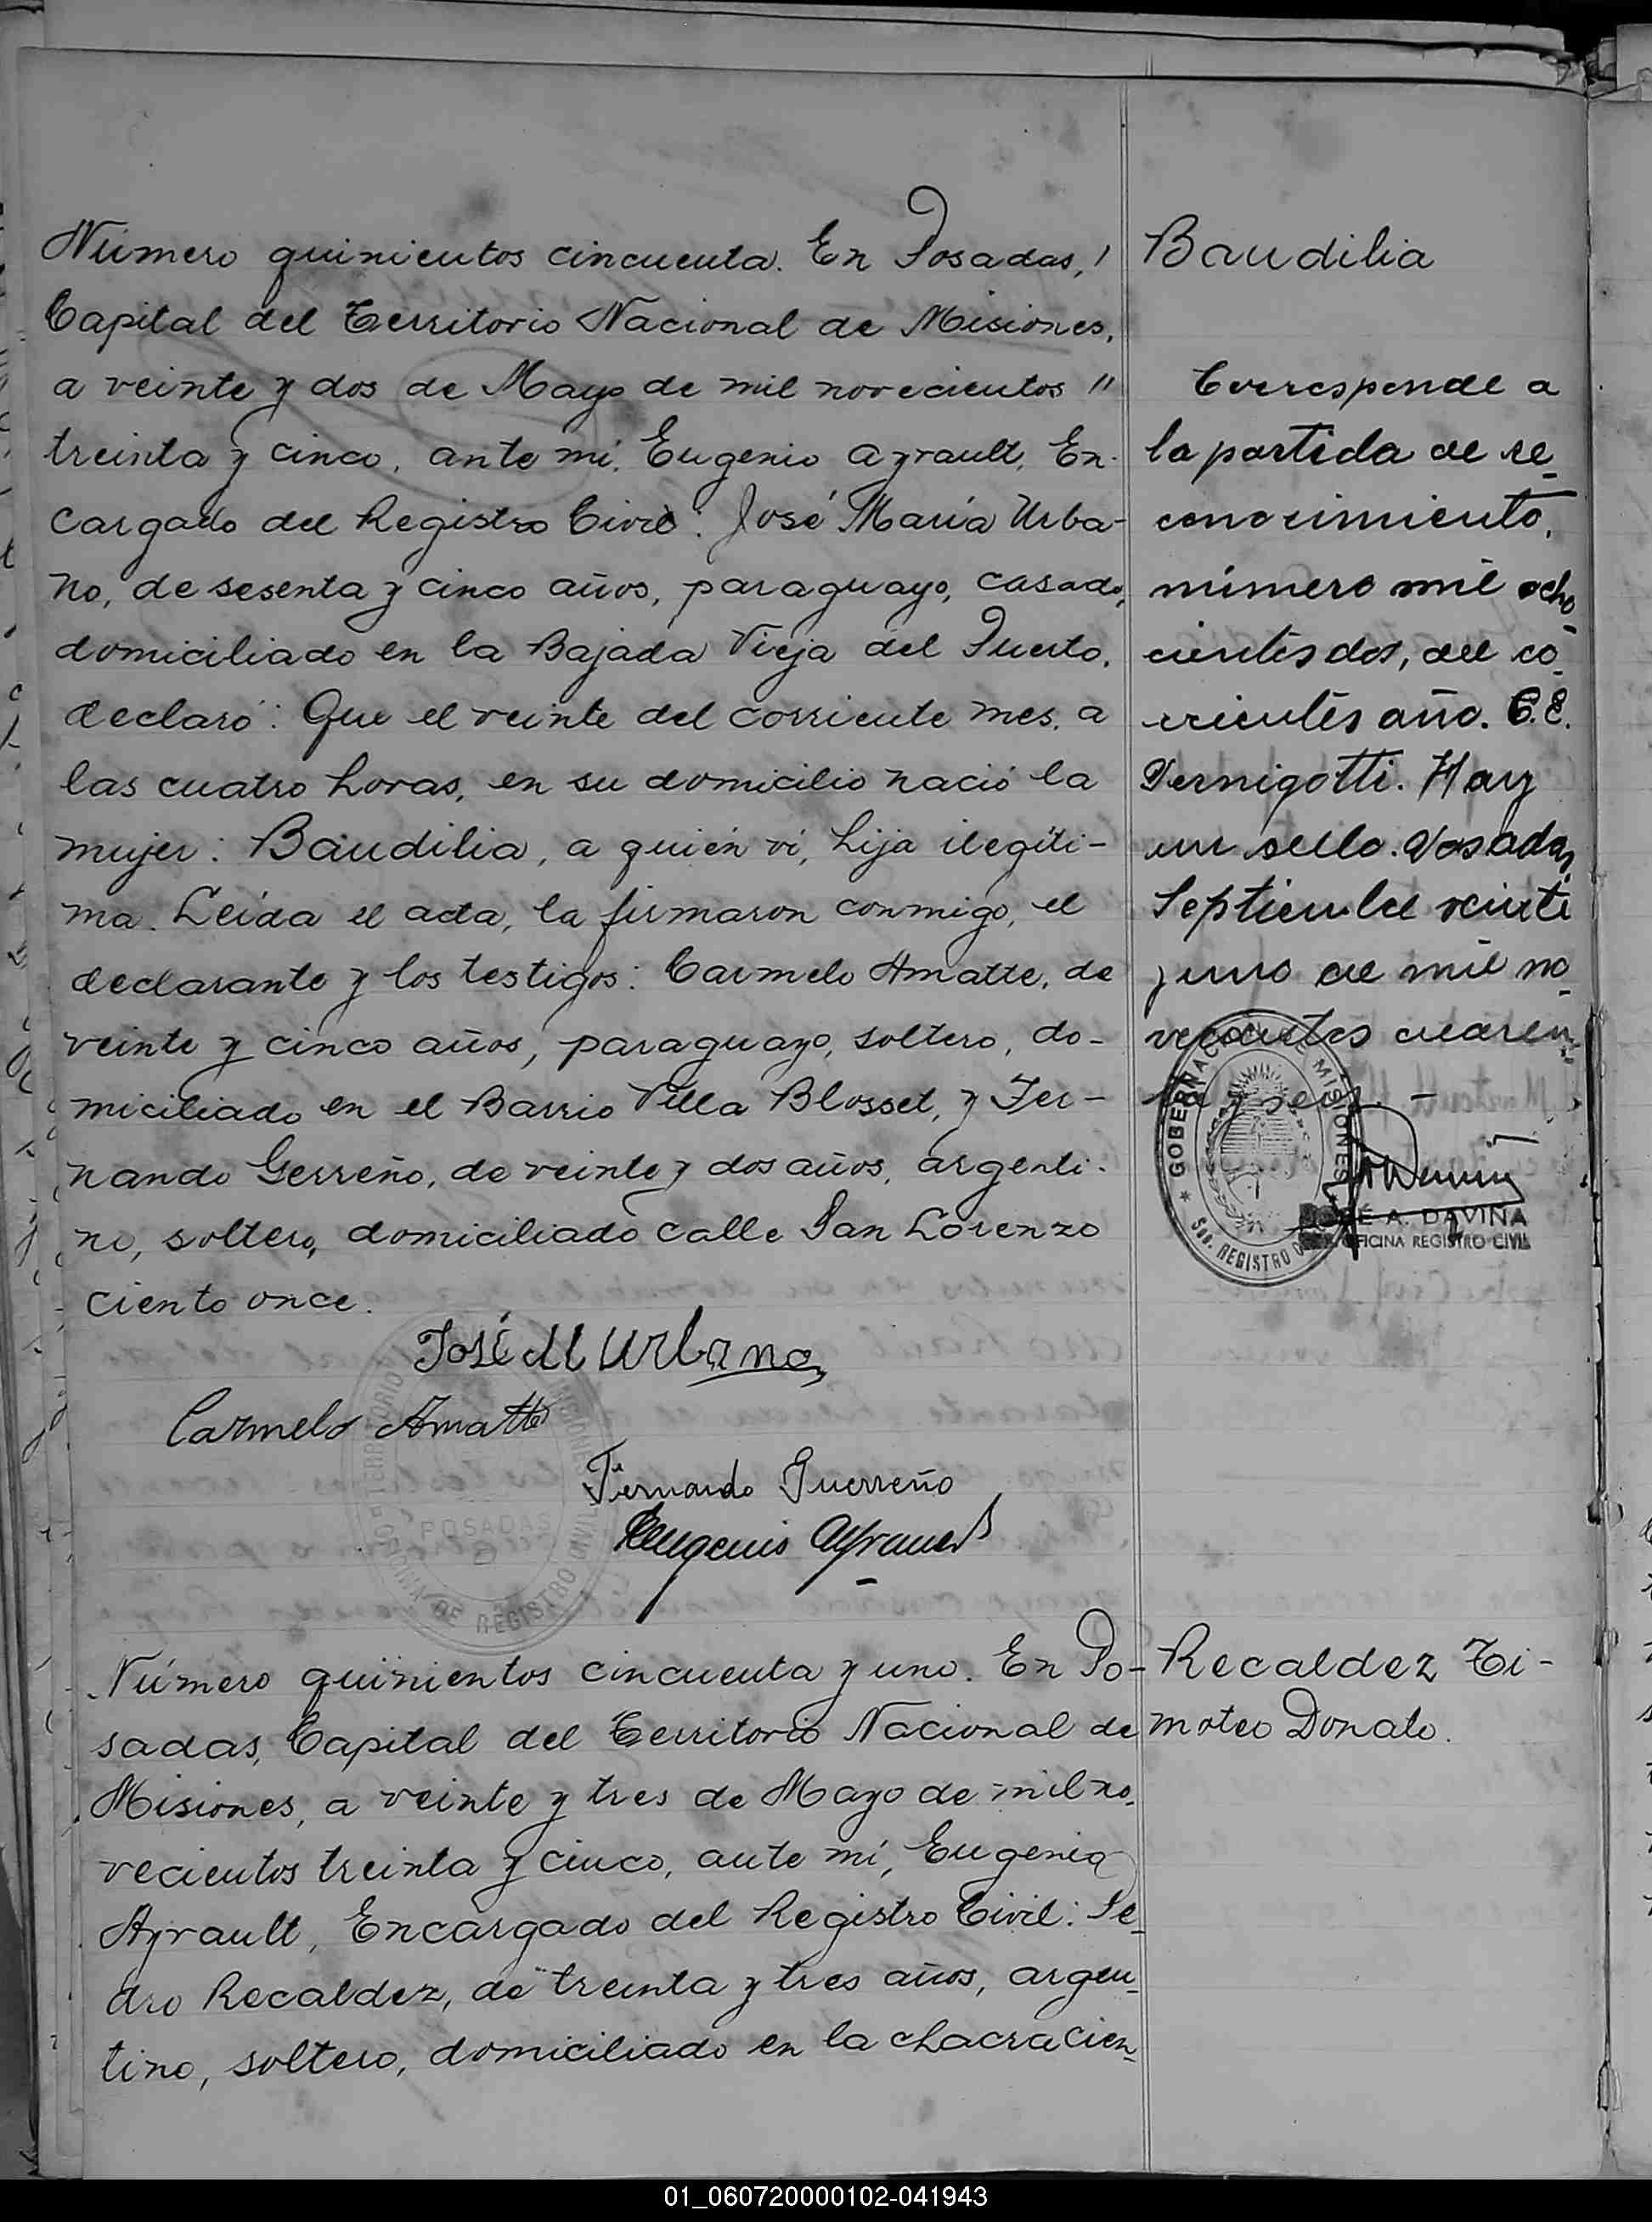 Número quinientos cincuenta. En Posadas,
Capital del Territorio Nacional de Misiones,
a veinte y dos de Mayo de mil novecientos "
treinta y cinco, ante mí, Eugenio Ayrault, En-
cargado del Registro Civil: José María Urba-
no, de sesenta y cinco años, paraguayo, casado,
domiciliado en la Bajada Vieja del Puerto,
declaró: Que el veinte del corriente mes, a
las cuatro horas, en su domicilio nació la
mujer: Baudilia, a quién ví, hija ilegíti-
ma. Leída el acta, la firmaron conmigo, el
declarante y los testigos: Carmelo Amatte, de
veinte y cinco años, paraguayo, soltero, do-
miciliado en el Barrio Villa Blosset, y Fer-
nando Gerreño, de veinte y dos años, argenti-
no, soltero, domiciliado calle San Lorenzo
ciento once.
José M Urbano
Carmelo Amatte
Fernando Guerreño
Eugenio Ayrault
TERRITORIO MISIONES
POSADAS
OFICINA DE REGISTRO CIVIL
Baudilia
Corresponde a
la partida de re-
conocimiento,
número mil ocho-
cientos dos, del co-
rriente año. C.E.
Pernigotti. Hay
un sello. Posadas,
Septiembre veinte
y uno de mil no-
vecientos cuaren-
ta y
GOBERNACION DE MISIONES
REGISTRO
JOSÉ A. DAVIÑA
OFICINA REGISTRO CIVIL
Número quinientos cincuenta y uno. En Po-
sadas, Capital del Territorio Nacional de
Misiones, a veinte y tres de Mayo de mil no-
vecientos treinta y cinco, ante mí, Eugenio
Ayrault, Encargado del Registro Civil: Pe-
dro Recaldez, de treinta y tres años, argen-
tino, soltero, domiciliado en la chacra cien-
Recaldez Ti-
moteo Donato.
01_060720000102-041943